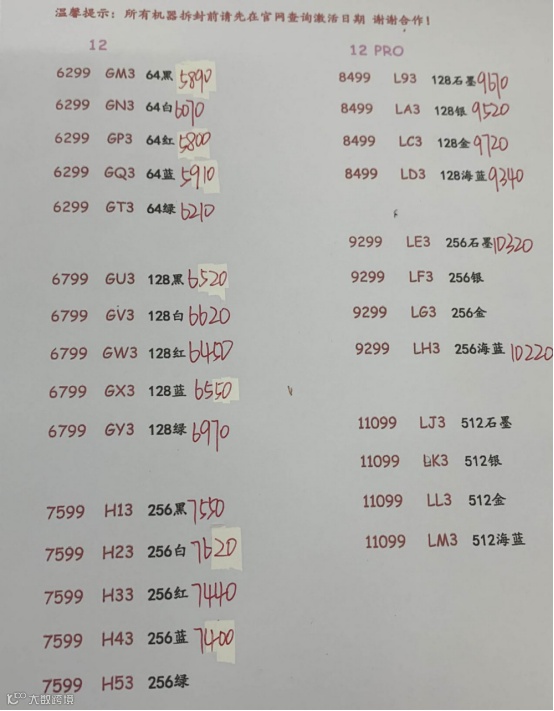 温馨提示：所有机器拆封前请先在官网查询激活日期 谢谢合作！
12
6299 GM3 64黑 5890
6299 GN3 64白 6070
6299 GP3 64红 5800
6299 GQ3 64蓝 5910
6299 GT3 64绿 6210
6799 GU3 128黑 6520
6799 GV3 128白 6620
6799 GW3 128红 6450
6799 GX3 128蓝 6550
6799 GY3 128绿 6970
7599 H13 256黑 7550
7599 H23 256白 7620
7599 H33 256红 7440
7599 H43 256蓝 7400
7599 H53 256绿
12 PRO
8499 L93 128石墨 9670
8499 LA3 128银 9520
8499 LC3 128金 9720
8499 LD3 128海蓝 9340
9299 LE3 256石墨 10320
9299 LF3 256银
9299 LG3 256金
9299 LH3 256海蓝 10220
11099 LJ3 512石墨
11099 LK3 512银
11099 LL3 512金
11099 LM3 512海蓝
大数跨境